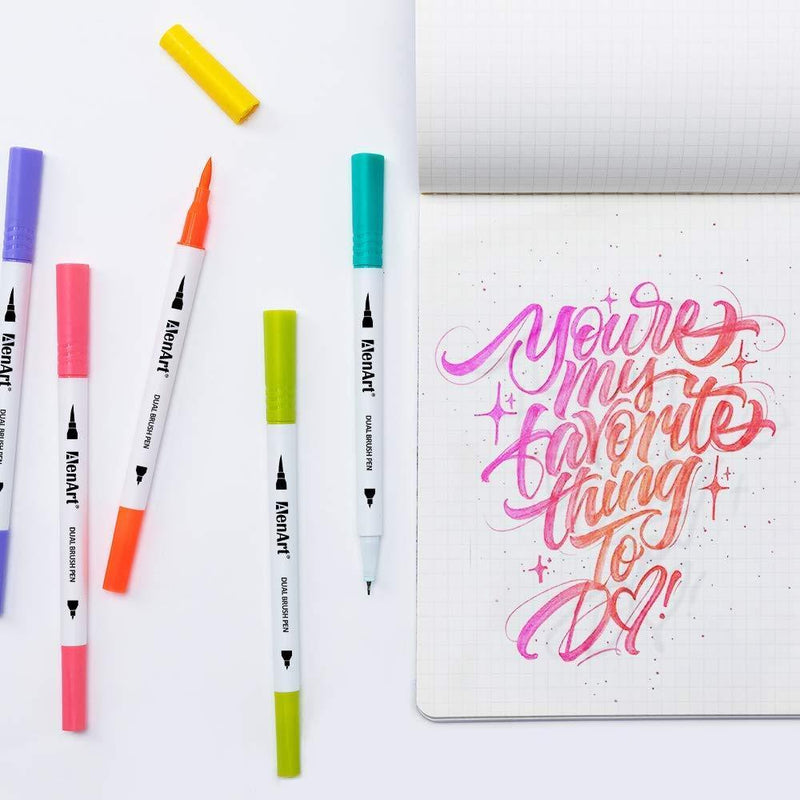 AenArt®
DUAL BRUSH PEN
AenArt®
DUAL BRUSH PEN
AenArt®
DUAL BRUSH PEN
AenArt®
DUAL BRUSH PEN
AenArt®
DUAL BRUSH PEN
Youre
my
favorite
thing
To
D♡!